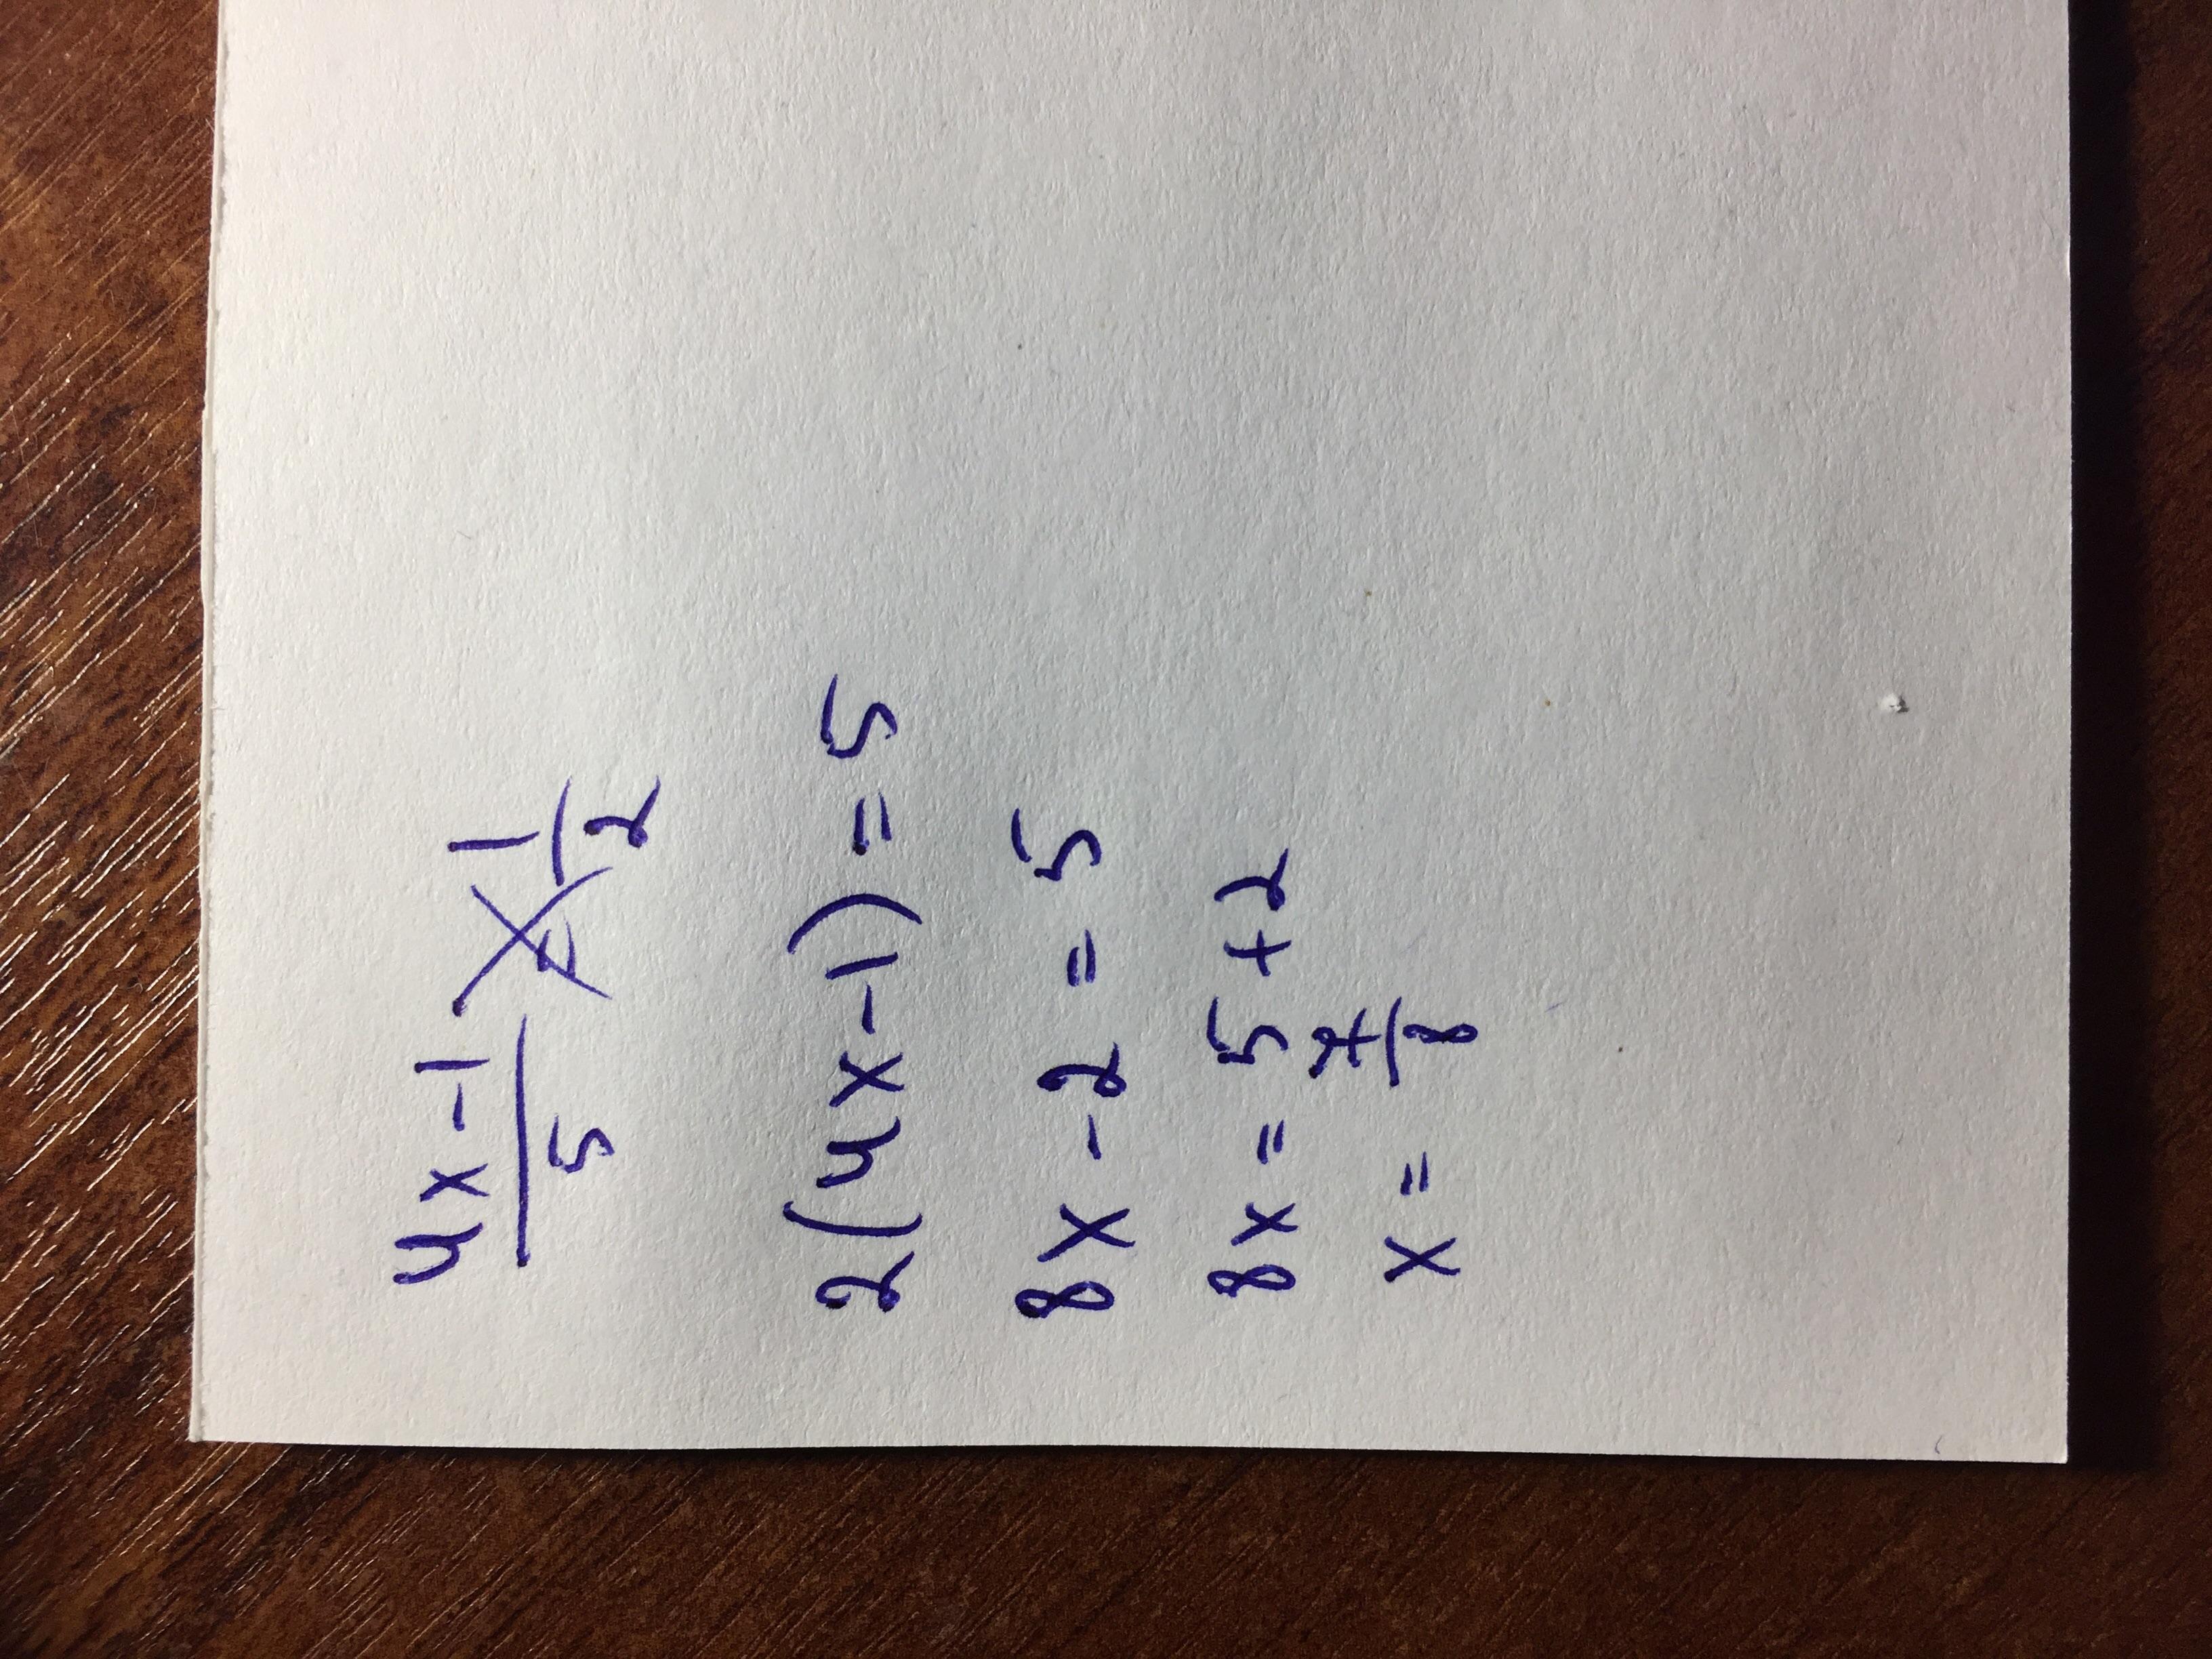 4x-1/5 = 1/2
2(4x-1)=5
8x-2=5
8x=5+2
x=7/8